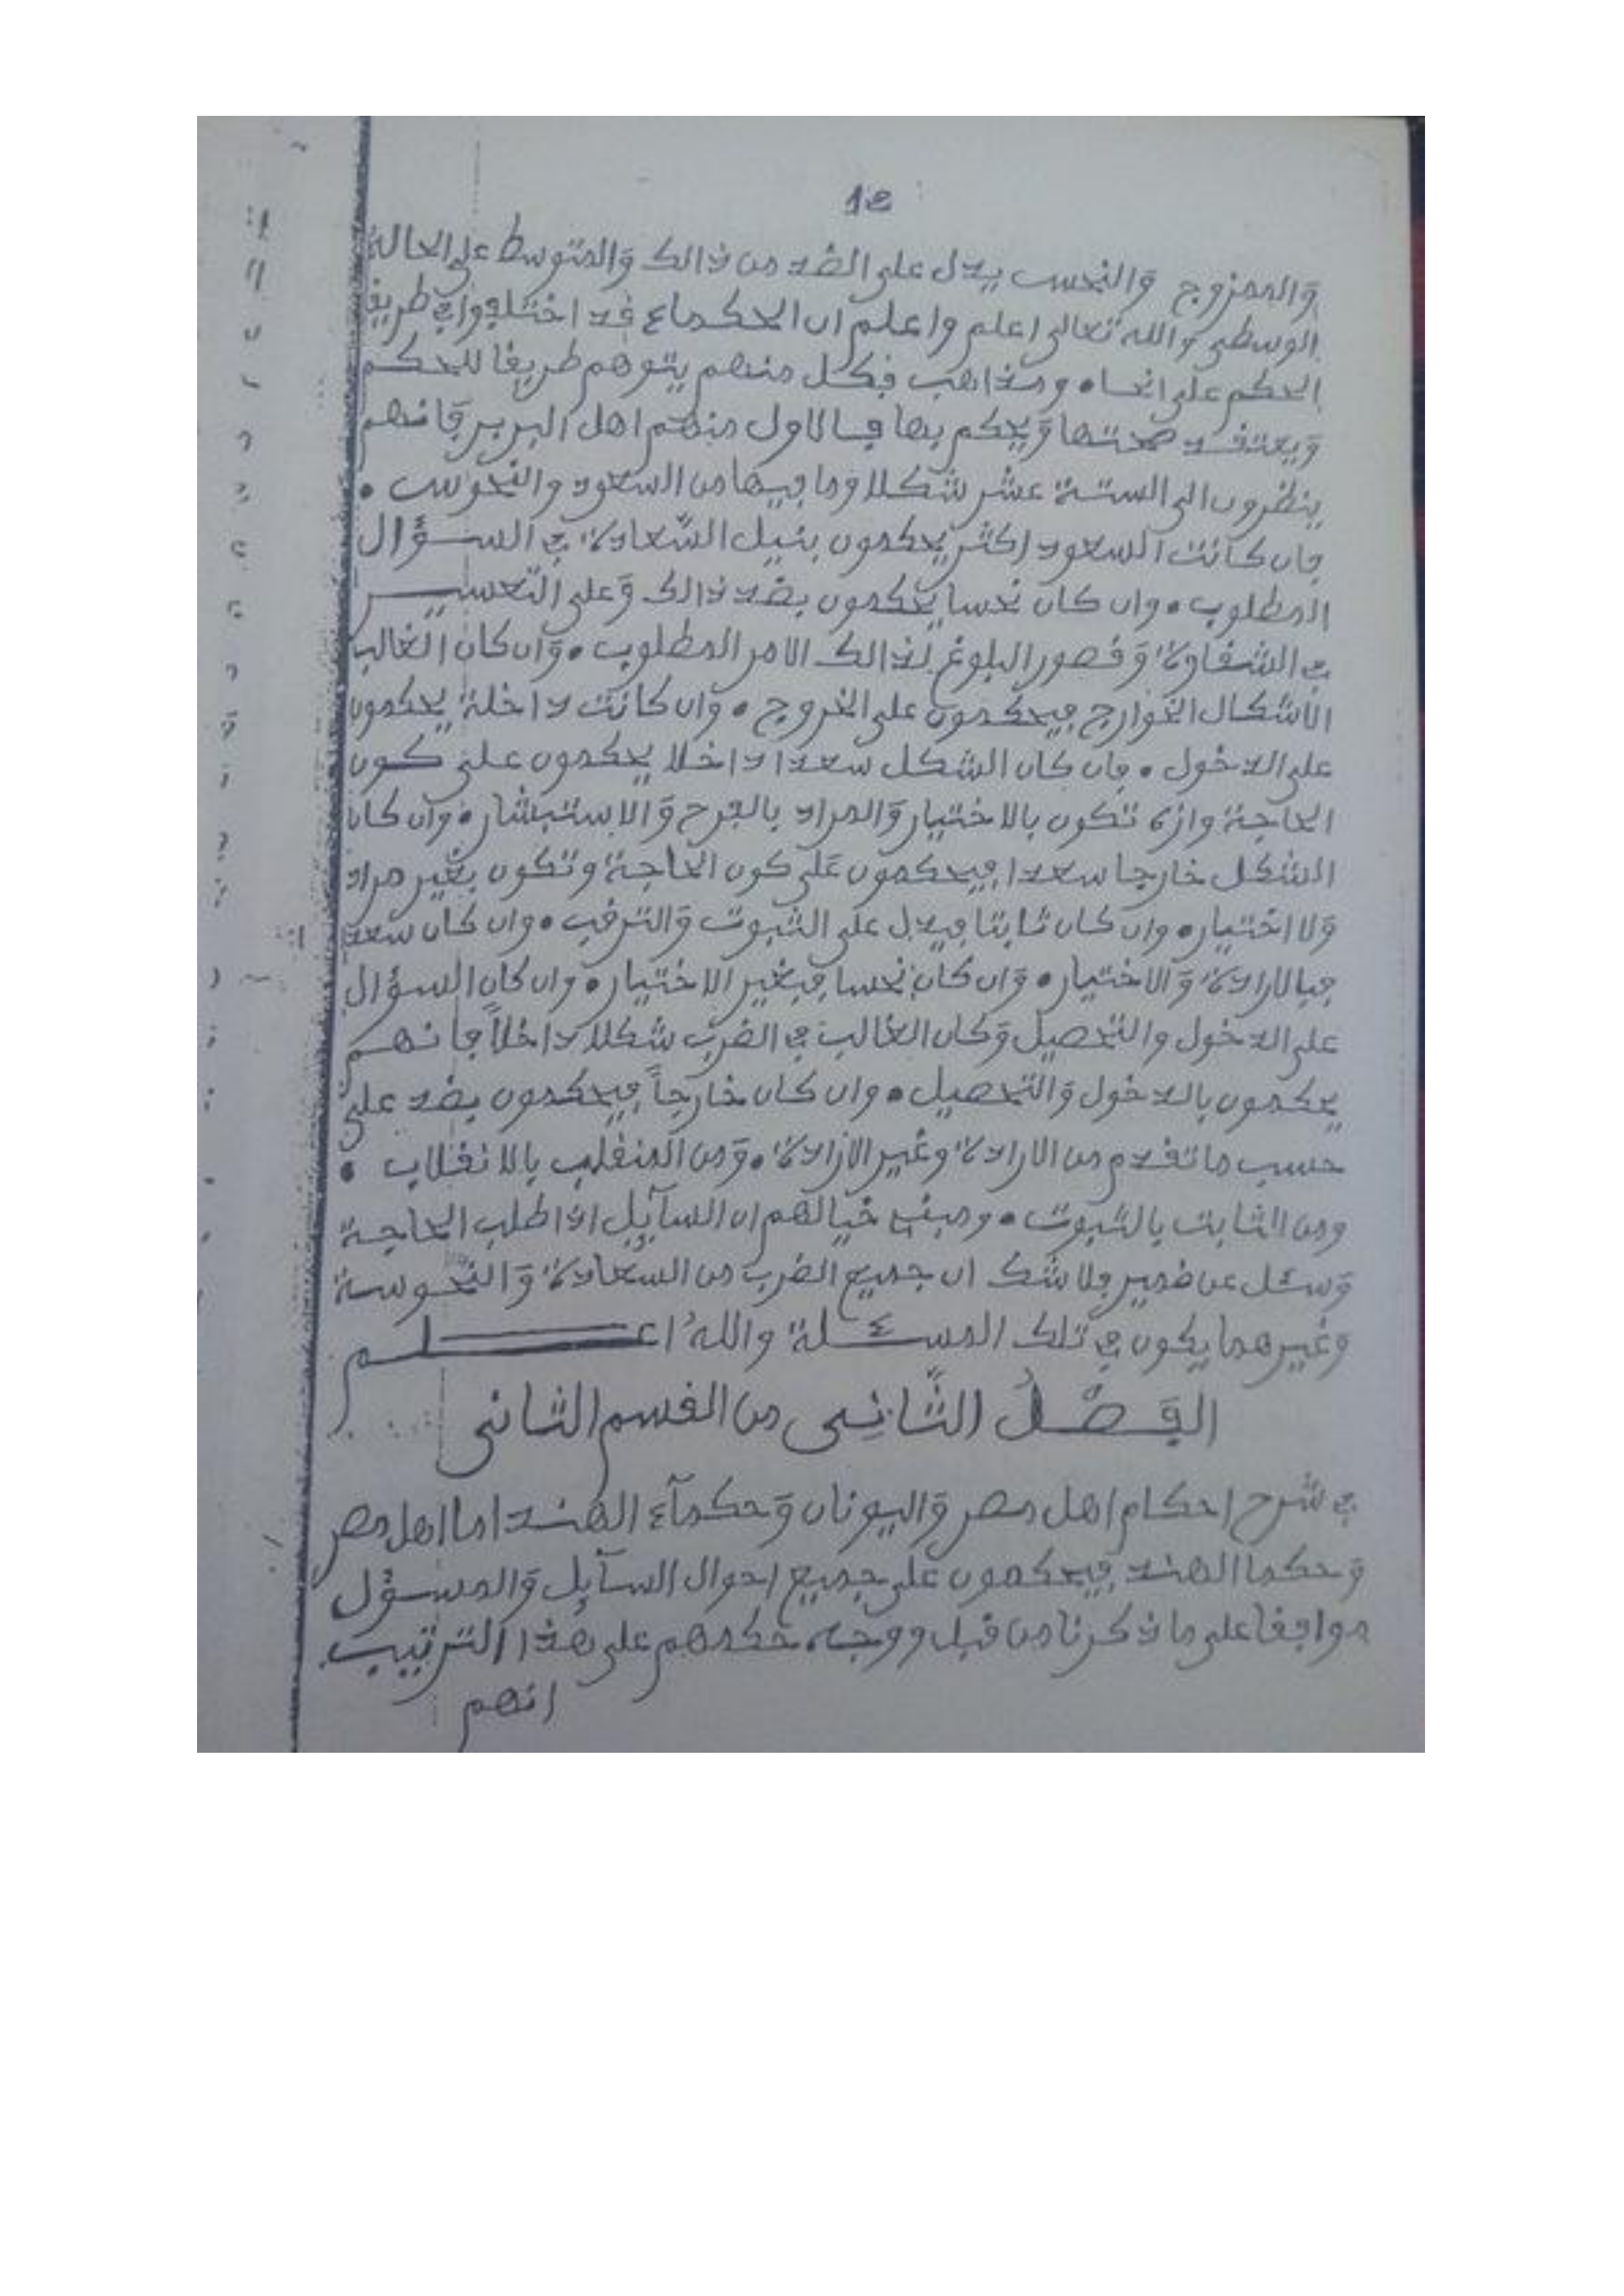 12
والممزوج والنحس يدل على الضد من ذالك والمتوسط على الحالة
الوسطى والله تعالى اعلم واعلم ان الحكماء قد اختلفوا في طريق
الحكم على انحاء ومذاهب فكل منهم يتوهم طريقا للحكم
ويعتقد صحتها ويحكم بها فالاول منهم اهل البربر فانهم
ينظرون الى الستة عشر شكلا وما فيها من السعود والنحوس •
فان كانت السعود اكثر يحكمون بنيل السّعادة في السؤال
المطلوب • وان كان نحسا يحكمون بضد ذالك وعلى التعسير
في الشقاوة وقصور البلوغ لذالك الامر المطلوب • وان كان الغالب
الاشكال الخوارج فيحكمون على الخروج • وان كانت داخلة يحكمون
على الدخول • فان كان الشكل سعدا داخلا يحكمون على كون
الحاجة وانه تكون بالاختيار والمراد بالفرح والاستبشار • وان كان
الشكل خارجا سعدا فيحكمون على كون الحاجة وتكون بغير مراد
ولا اختيار • وان كان ثابتا فيدل على الثبوت والترقب • وان كان سعد
فبالارادة والاختيار • وان كان نحسا فبغير الاختيار • وان كان السؤال
على الدخول والتحصيل وكان الغالب في الضرب شكلا داخلاً فانهم
يحكمون بالدخول والتحصيل • وان كان خارجاً فيحكمون بضد على
حسب ما تقدم من الارادة وغير الارادة • ومن المنقلب بالانقلاب •
ومن الثابت بالثبوت • خيالهم ان السآيل اذا طلب الحاجة
وسئل عن ضمير فلا شك ان جميع الضرب من السعادة والنّحوسة
وغيرهما يكون في تلك المسئلة واللهُ اعلم
الفَصْلُ الثَّانِى من القسم الثانى
في شرح احكام اهل مصر واليونان وحكمآء الهند اما اهل مصر
وحكما الهند فيحكمون على جميع احوال السآيل والمسؤل
موافقا على ما ذكرنا من قبل ووجه حكمهم على هذا الترتيب
انهم